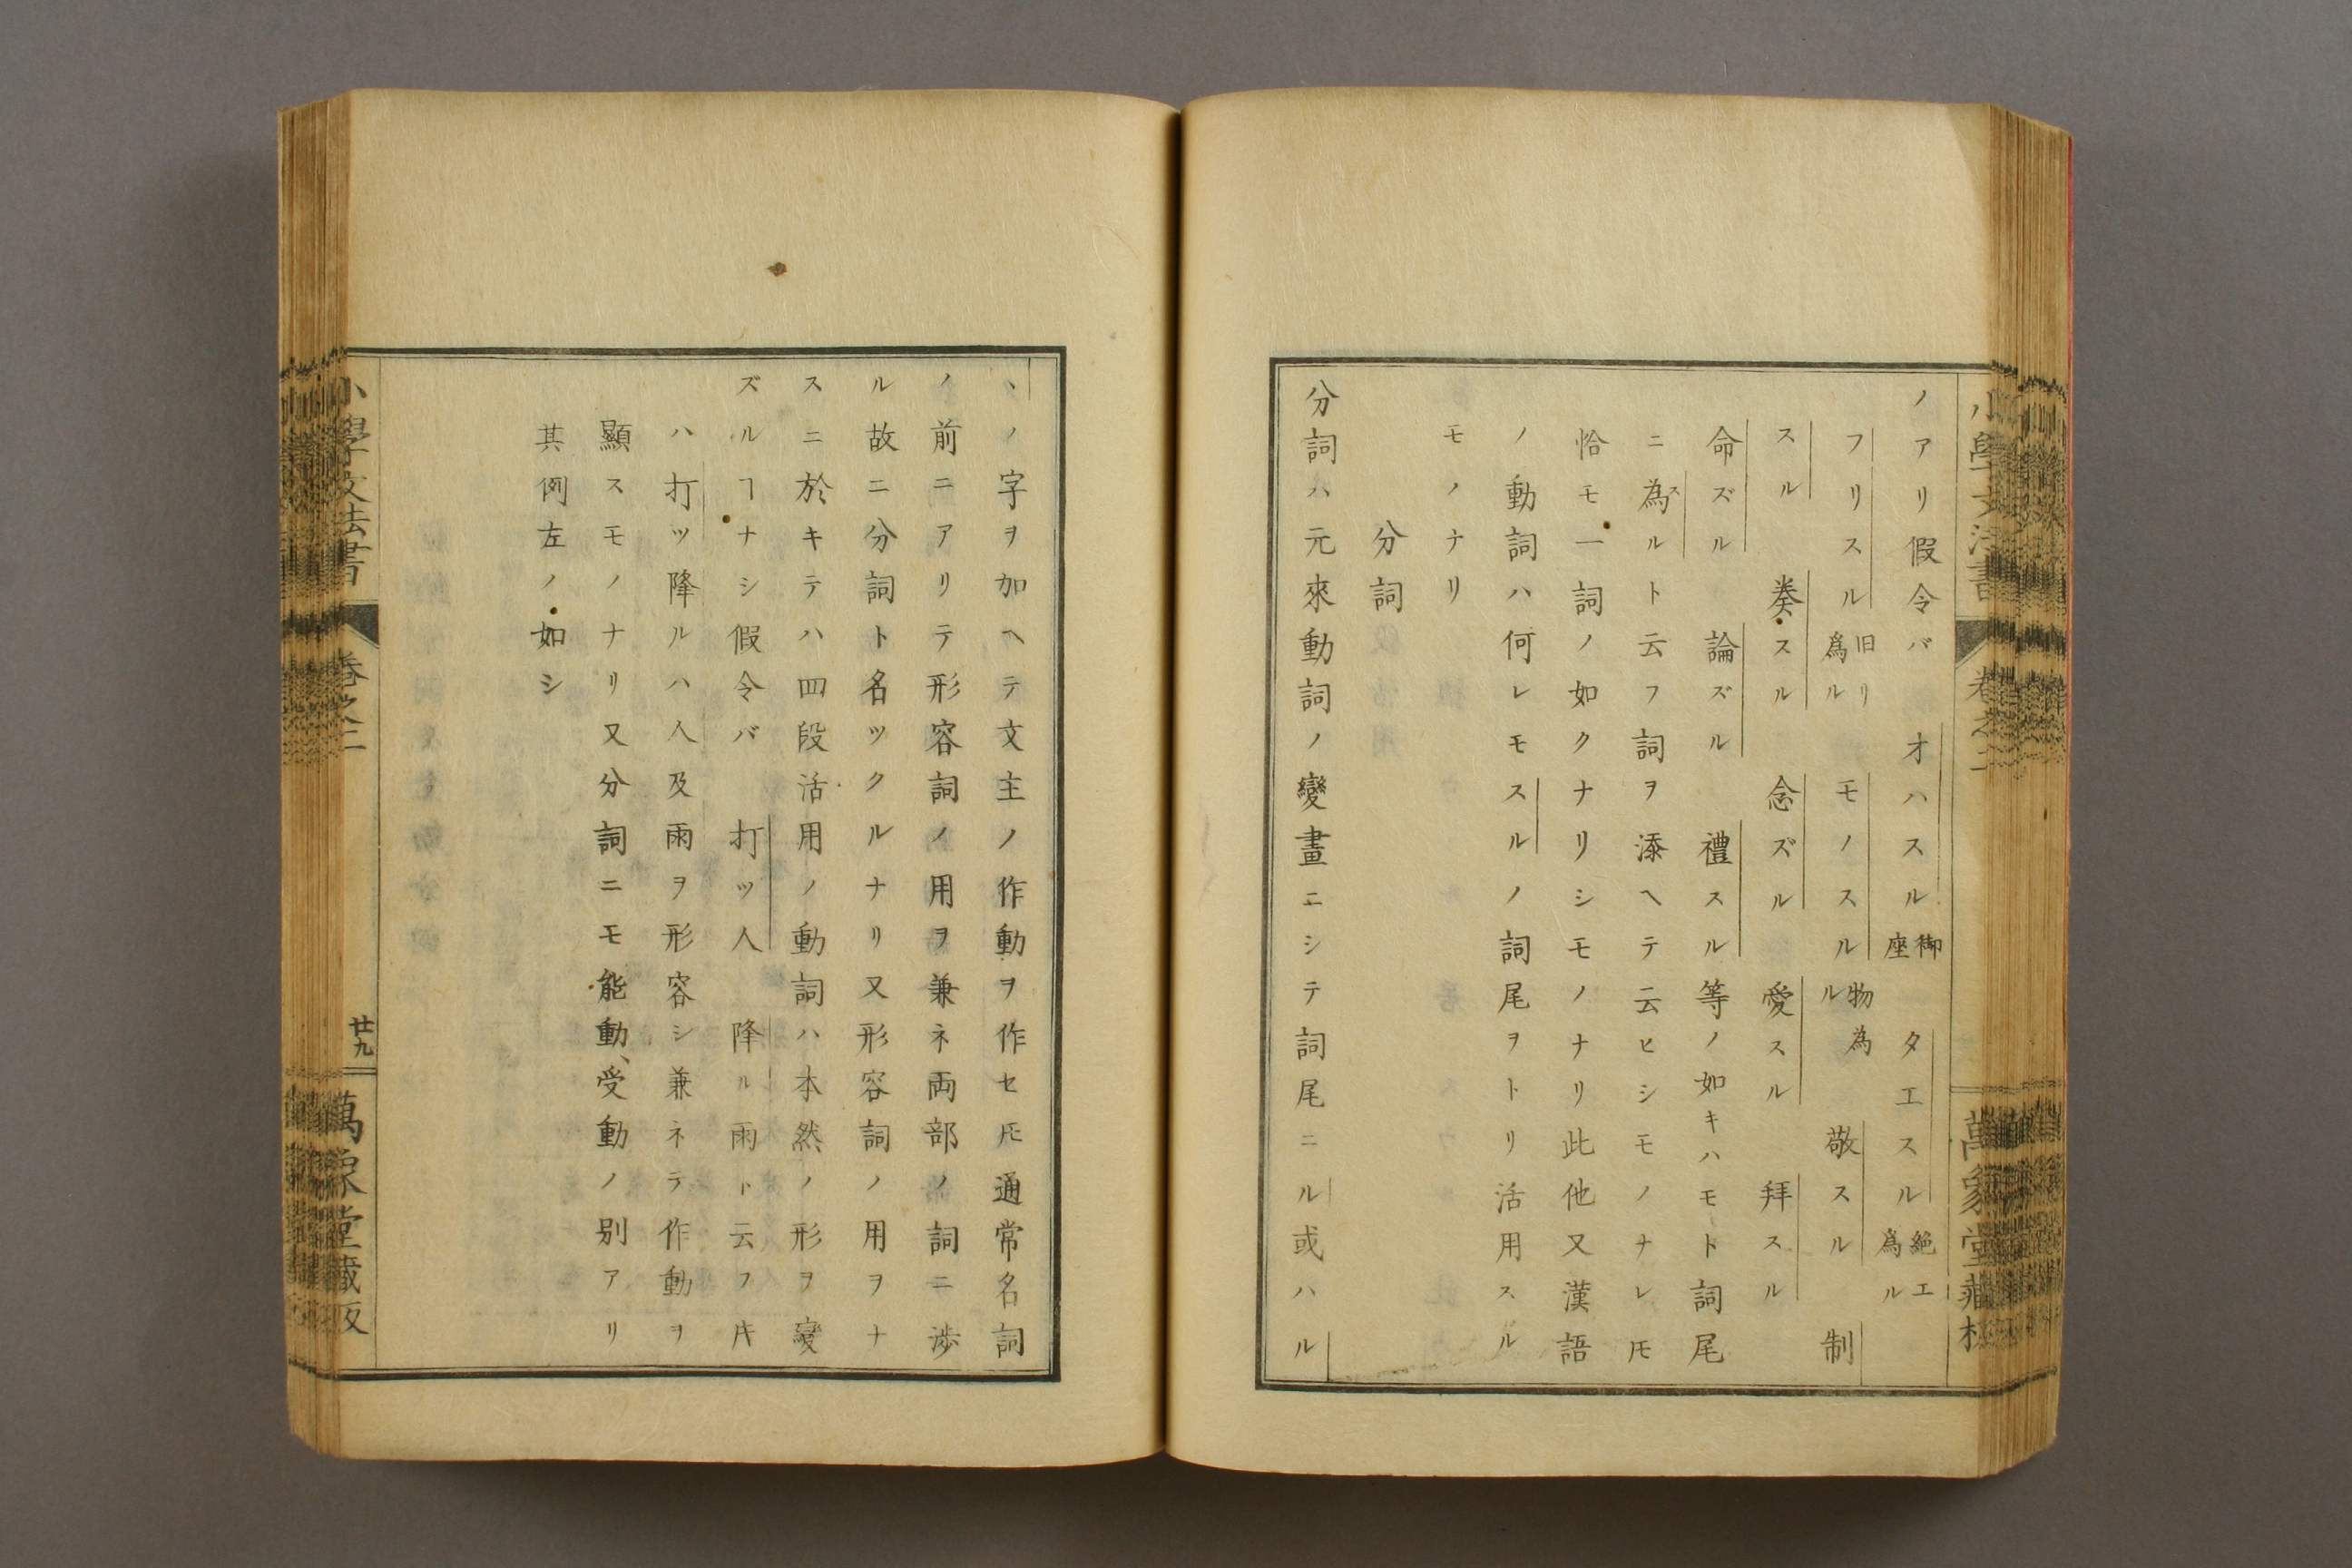 ノアリ假令バ オハスル 御座 タエスル 絶エ爲ル
フリスル 旧リ爲ル モノスル 物為ル 敬スル 制
スル 奏スル 念ズル 愛スル 拜スル
命ズル 論ズル 禮スル等ノ如キハモト詞尾
ニ為スルト云フ詞ヲ添ヘテ云ヒシモノナレ𪜈
恰モ一詞ノ如クナリシモノナリ此他又漢語
ノ動詞ハ何レモスルノ詞尾ヲトリ活用スル
モノナリ
分詞
分詞ハ元來動詞ノ變畫ニシテ詞尾ニル或ハル
ヽノ字ヲ加ヘテ文主ノ作動ヲ作セ𪜈通常名詞
ノ前ニアリテ形容詞ノ用ヲ兼ネ両部ノ詞ニ渉
ル故ニ分詞ト名ツクルナリ又形容詞ノ用ヲナ
スニ於キテハ四段活用ノ動詞ハ本然ノ形ヲ變
ズルヿナシ假令バ 打ツ人 降ル雨ト云フ𬼀
ハ打ツ降ルハ人及雨ヲ形容シ兼ネテ作動ヲ
顯スモノナリ又分詞ニモ能動、受動ノ別アリ
其例左ノ如シ
小學文法書
卷之二
廿九
萬象堂藏板